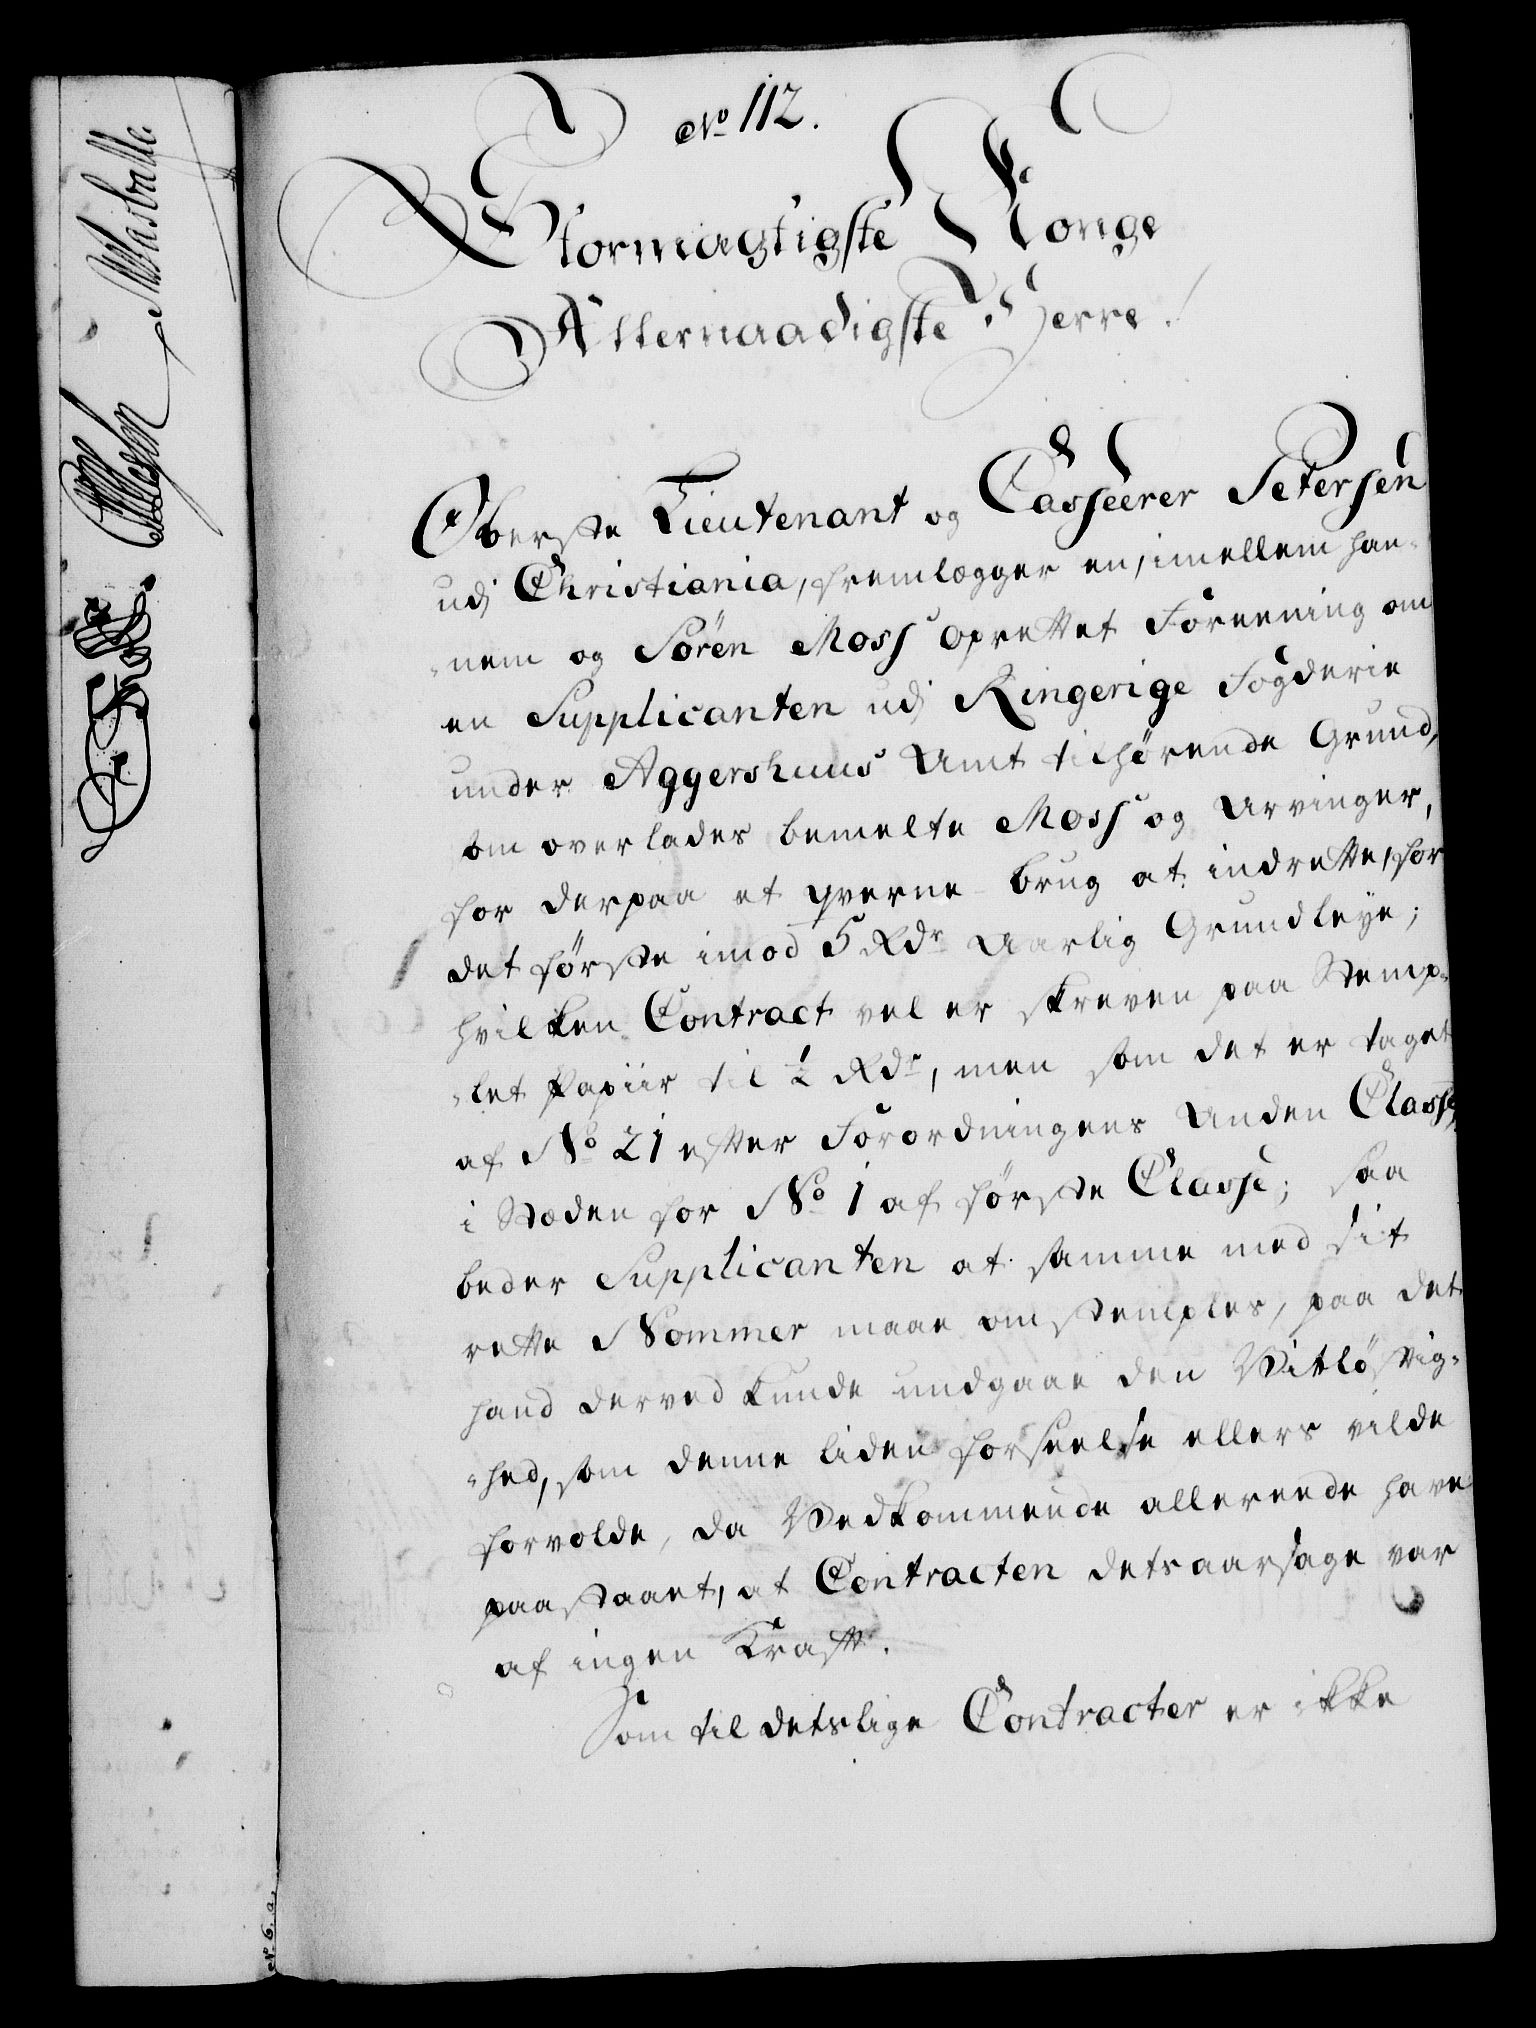 No 112.
Stormægtigste Konge
Allernaadigste Herre!
Oberste Lieutenant og Casseerer Petersen
udj Christiania, fremlægger en, imellem han-
-nem og Sören Moss oprettet Foreening om
en Supplicanten udj Ringerige Fogderie
under Aggershuus Amt tilhørende Grund,
som overlades bemelte Moss og Arvinger,
for derpaa et qverne-brug at indrette, for
det første imod 5 Rdr Aarlig Grundleye;
hvilken Contract vel er skreven paa Stemp-
-let Papiir til ½ Rdr, men som det er taget
af No 21 efter Forordningens Anden Classe,
i Stæden for No 1 af første Classe; saa
beder Supplicanten at samme med sit
rette Nommer maae omstemples, paa det
hand derved kunde undgaae den Vitløftig-
-hed, som denne liden forseelse ellers vilde
forvolde, da Vedkommende allereede have
paastaaet, at Contracten detsaarsage var
af ingen Kraft.
Som til detslige Contracter er ikke
No. 6. a.